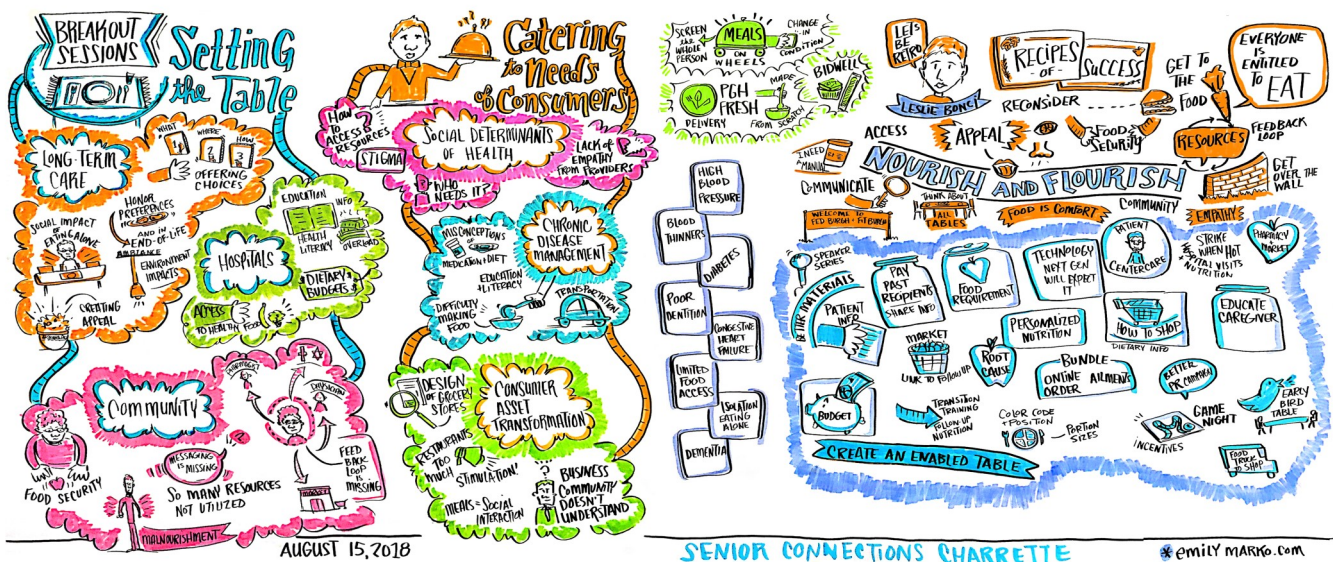 BREAKOUT
SESSIONS
Setting
the Table
LONG-TERM
CARE
WHAT
WHERE
HOW
OFFERING
CHOICES
HONOR
PREFERENCES
AND IN
END-OF-LIFE
AMBIANCE
SOCIAL IMPACT
EATING ALONE
ENVIRONMENT
IMPACTS
CREATING
APPEAL
HOSPITALS
EDUCATION
HEALTH
LITERACY
INFO
OVERLOAD
DIETARY
BUDGETS
ACCESS
TO HEALTHY FOOD
COMMUNITY
FOOD SECURITY
MESSAGING
IS
MISSING
SO MANY RESOURCES
NOT UTILIZED
MALNOURISHMENT
FEED
BACK
LOOP
IS
MISSING
AUGUST 15, 2018
Catering
to Needs
of Consumers
HOW
TO
ACCESS
RESOURCES
?
STIGMA
SOCIAL DETERMINANTS
OF HEALTH
WHO
NEEDS IT?
LACK OF
EMPATHY
FROM PROVIDERS
MISCONCEPTIONS
OF
MEDICATION + DIET
CHRONIC
DISEASE
MANAGEMENT
EDUCATION
+ LITERACY
DIFFICULTY
MAKING
FOOD
TRANSPORTATION
DESIGN
OF GROCERY
STORES
CONSUMER
ASSET
TRANSFORMATION
RESTAURANTS
TOO
MUCH STIMULATION!
MEALS = SOCIAL
INTERACTION
?
BUSINESS
COMMUNITY
DOESN'T
UNDERSTAND
SCREEN
the WHOLE
PERSON
MEALS
ON
WHEELS
CHANGE
IN
CONDITION
PGH
FRESH
DELIVERY
MADE
FROM SCRATCH
BIDWELL
HIGH
BLOOD
PRESSURE
BLOOD
THINNERS
DIABETES
POOR
DENTITION
CONGESTIVE
HEART
FAILURE
LIMITED
FOOD
ACCESS
ISOLATION
EATING
ALONE
DEMENTIA
LET'S
BE
RETRO
LESLIE BONCI
RECIPES
OF
SUCCESS
RECONSIDER
GET TO
THE
FOOD
EVERYONE
IS
ENTITLED
TO EAT
ACCESS
APPEAL
FOOD
SECURITY
RESOURCES
FEEDBACK
LOOP
I NEED
A MANUAL
COMMUNICATE
NOURISH AND FLOURISH
GET
OVER THE
WALL
THINK ABOUT
ALL
TABLES
FOOD IS COMFORT
COMMUNITY
EMPATHY
SPEAKER
SERIES
BETTER MATERIALS
PATIENT
INFO
PAY
PAST
RECIPIENTS
SHARE INFO
FOOD
REQUIREMENT
TECHNOLOGY
NEXT GEN
WILL EXPECT
IT
PATIENT
CENTERCARE
STRIKE
WHEN HOT
PHARMACY
MARKET
PERSONALIZED
NUTRITION
HOW TO SHOP
DIETARY INFO
EDUCATE
CAREGIVER
MARKET
LINK TO FOLLOW UP
ROOT
CAUSE
BUNDLE
ONLINE AILMENTS
ORDER
BETTER
PR CAMPAIGN
BUDGET
TRANSITION
TRAINING
FOLLOW UP
NUTRITION
COLOR CODE
+ POSITION
PORTION
SIZES
INCENTIVES
GAME
NIGHT
EARLY
BIRD
TABLE
FOOD
TRUCK
TO SHOP
CREATE AN ENABLED TABLE
SENIOR CONNECTIONS CHARRETTE
* emily marko.com